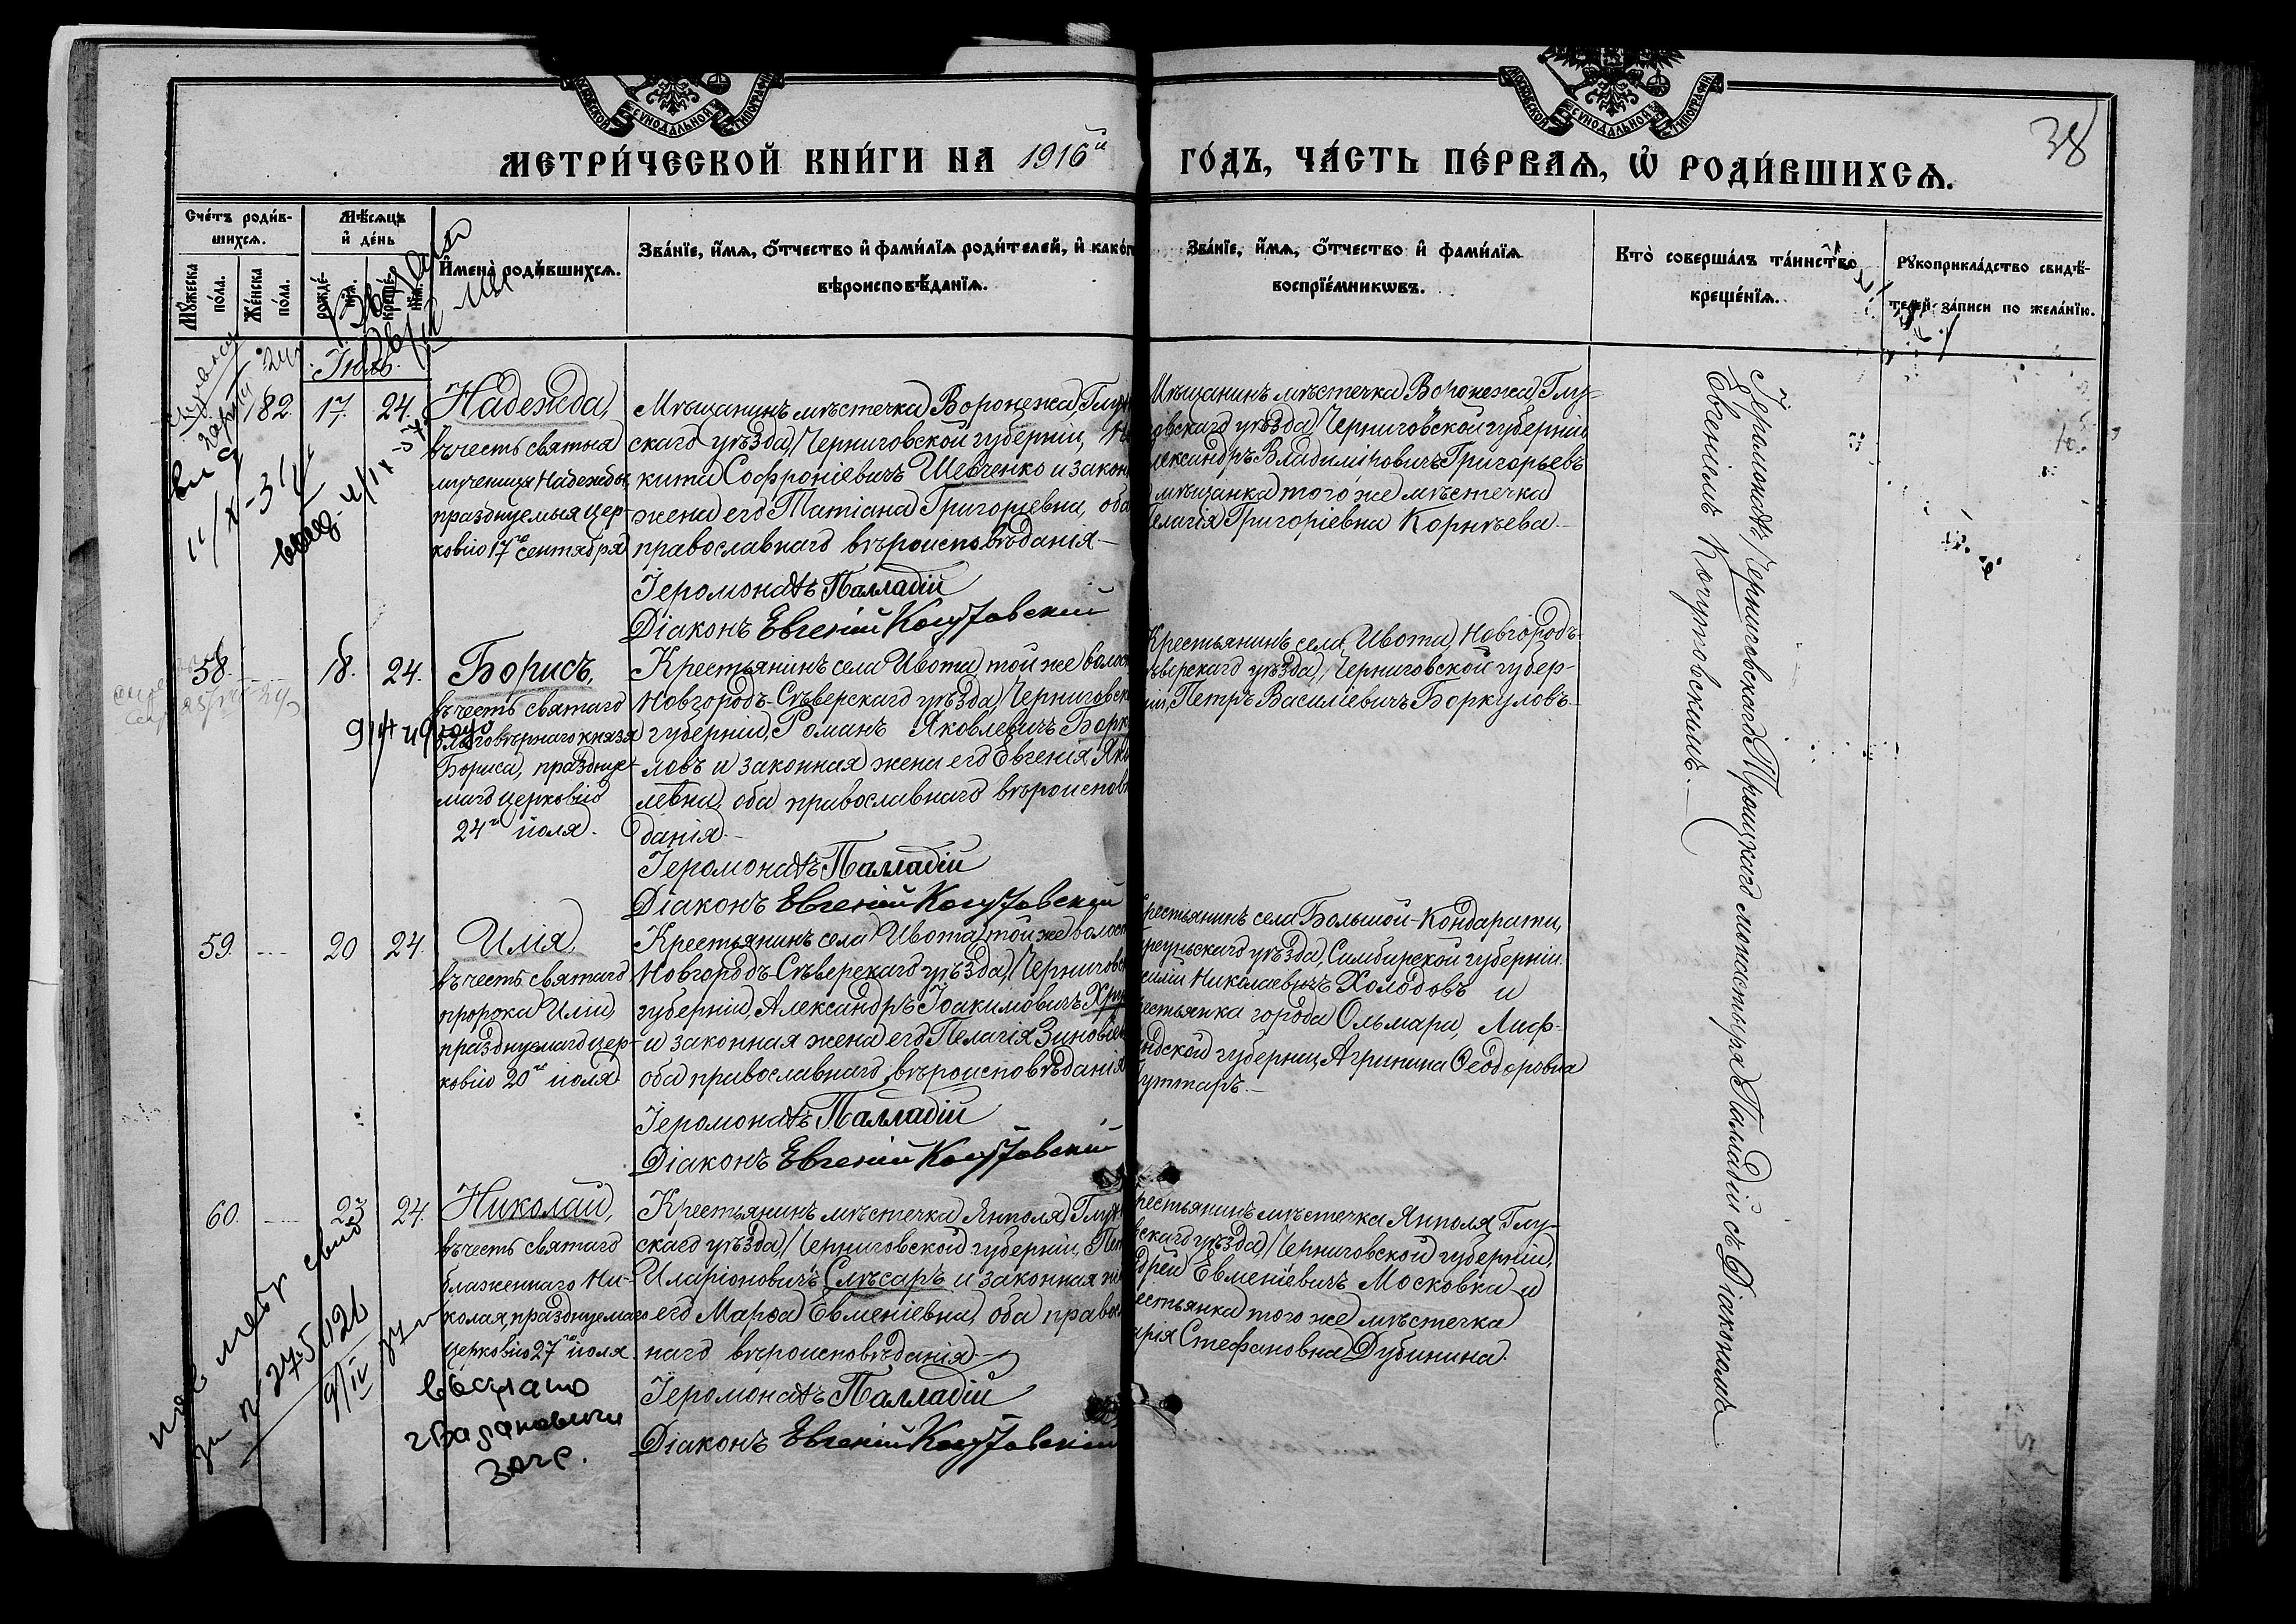 МЕТРИ́ЧЕСКОЙ КНИ́ГИ НА 1916й ГО́ДЪ, ЧА́СТЬ ПЕ́РВАѦ, Ѡ҆ РОДИ́ВШИХСѦ.
38
МОСКОВСКОЙ СѴНОДАЛЬНОЙ ТИПОГРАФІИ
МОСКОВСКОЙ СѴНОДАЛЬНОЙ ТИПОГРАФІИ
Сче́тъ роди́в-
шихсѧ.
Мꙋ́жеска по́ла.
Же́нска по́ла.
Мѣ́сѧцъ
и҆ де́нь
рожде́-
нїѧ.
креще́-
нїѧ.
И҆мена̀ роди́вшихсѧ.
Зва́нїе, и҆́мѧ, ѻ҆́тчество и҆ фами́лїѧ роди́телей, и҆ како́г
вѣроисповѣ́данїѧ.
Зва́нїе, и҆́мѧ, ѻ҆́тчество и҆ фами́лїѧ
воспрїе́мникѡвъ.
Кто̀ соверша́лъ та́инство
креще́нїѧ.
Рꙋкоприкла́дство свидѣ́-
телей за́писи по жела́нїю.
Іюль.
182. 17. 24. Надежда,
въ честь святыя
мученицы Надежды,
празднуемыя цер-
ковію 17го сентября
Мѣщанинъ мѣстечка Воронежа, Глух
скаго уѣзда, Черниговской губерніи, Ни
кита Софроніевичъ Шевченко и закон
жена его Татіана Григоріевна, оба
православнаго вѣроисповѣданія.—
Іеромонахъ Палладій
Діаконъ Евгеній Кочутовскій
Мѣщанинъ мѣстечка Воронежа, Глу-
овскаго уѣзда, Черниговской губерніи
лександръ Владиміровичъ Григорьевъ
мѣщанка того же мѣстечка
елагія Григоріевна Корнѣева.—
58. --- 18. 24. Борисъ,
въ честь святаго
благовѣрнаго князя
Бориса, праздну-
маго церковію
24го іюля.
Крестьянинъ села Ивота, той же волост
Новгородъ-Сѣверскаго уѣзда, Черниговск
губерніи, Романъ Яковлевичъ Борк
ловъ и законная жена его Евгенія Яко
левна, оба православнаго вѣроисповѣ
данія.—
Іеромонахъ Палладій
Діаконъ Евгеній Кочутовскій
Крестьянинъ села Ивота, Новгородъ-
ѣверскаго уѣзда, Черниговской губер-
ніи, Петръ Василіевичъ Боркуловъ.—
59. --- 20 24. Илія,
въ честь святаго
пророка Иліи,
празднуемаго цер-
ковію 20го іюля.
Крестьянинъ села Ивота, той же волост
Новгородъ-Сѣверскаго уѣзда, Черниговск
губерніи, Александръ Іоакимовичъ Хру
и законная жена его Пелагія Зиновіев
оба православнаго вѣроисповѣданія
Іеромонахъ Палладій
Діаконъ Евгеній Кочутовскій
рестьянинъ села Большой-Кондарати,
уѣзда, Симбирской губерніи.
силій Николаевичъ Холодовъ и
естьянка города Ольмара, Лиф-
ндской губерніи, Агрипина Ѳеодоровна
уттаръ.—
60. --- 23 24. Николай,
въ честь святаго
блаженнаго Ни-
колая, празднуемаго
церковію 27го іюля.
Крестьянинъ мѣстечка Янполя, Глух
скаго уѣзда, Черниговской губерніи, Пет
Иларіоновичъ Слѣсарь и законная же
его Марѳа Евменіевна, оба правос
наго вѣроисповѣданія.—
Іеромонахъ Палладій
Діаконъ Евгеній Кочутовскій
рестьянинъ мѣстечка Янполя, Глу-
вскаго уѣзда, Черниговской губерніи,
дрей Евменіевичъ Московка и
естьянка того же мѣстечка
арія Стефановна Дубинина.
Іеромонахъ Черниговскаго Троицкаго монастыря Палладій съ Діакономъ
Евгеніемъ Кочутовскимъ.—